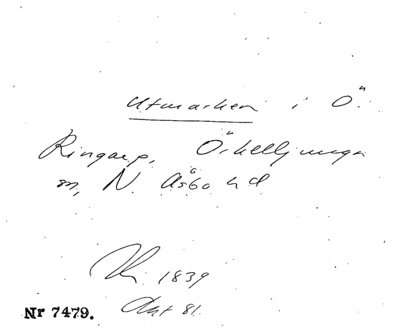 Utmarken i Ö.
Ringarp, Örkelljunga
sn, N. Åsbo hd
1839
Akt 81.
Nr 7479.